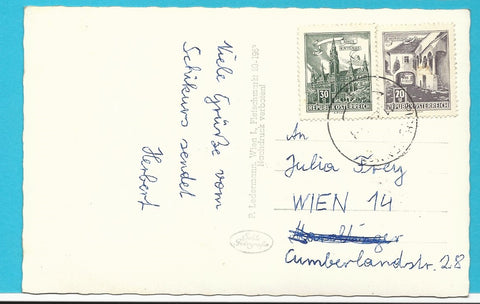 Viele Grüße vom
Schikurs sendet
Herbert
P. Ledermann, Wien I, Fleischmarkt
Nachdruck verboten!
30
REPUBLIK ÖSTERREICH
20
REPUBLIK ÖSTERREICH
An
Julia Frey
WIEN 14
Cumberlandstr. 28